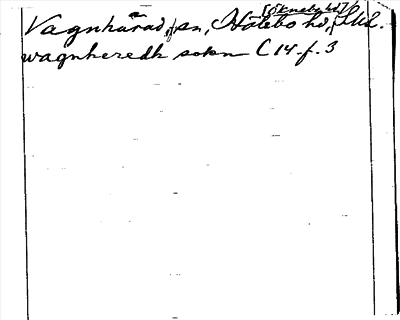 Vagnhärad, sn, Hölebo hd, Sthd.
wagnheredh sokn C 14 f. 3